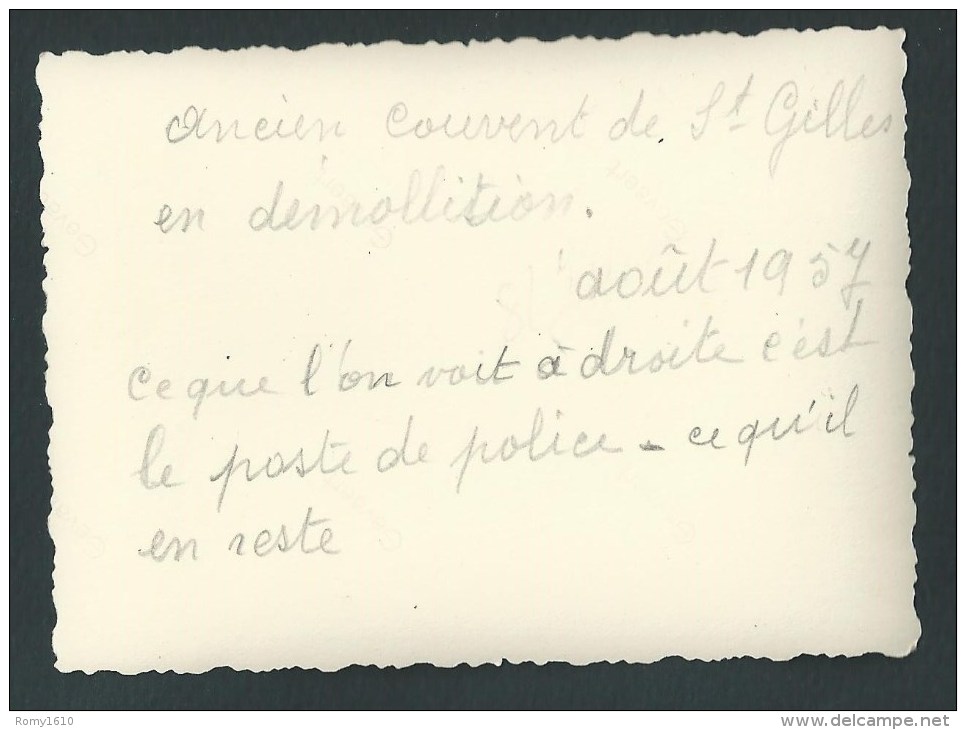 Ancien couvent de St Gilles
en démollition.
août 1957
Ce que l'on voit à droite c'est
le poste de police - ce qu'il
en reste
Romy1610
www.delcampe.net